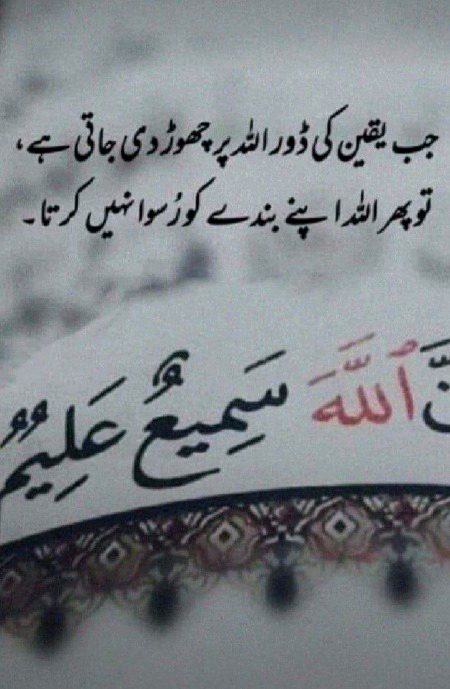 جب یقین کی ڈور اللہ پر چھوڑ دی جاتی ہے،
تو پھر اللہ اپنے بندے کو رُسوا نہیں کرتا۔
ٱللَّهَ سَمِيعٌ عَلِيمٌ